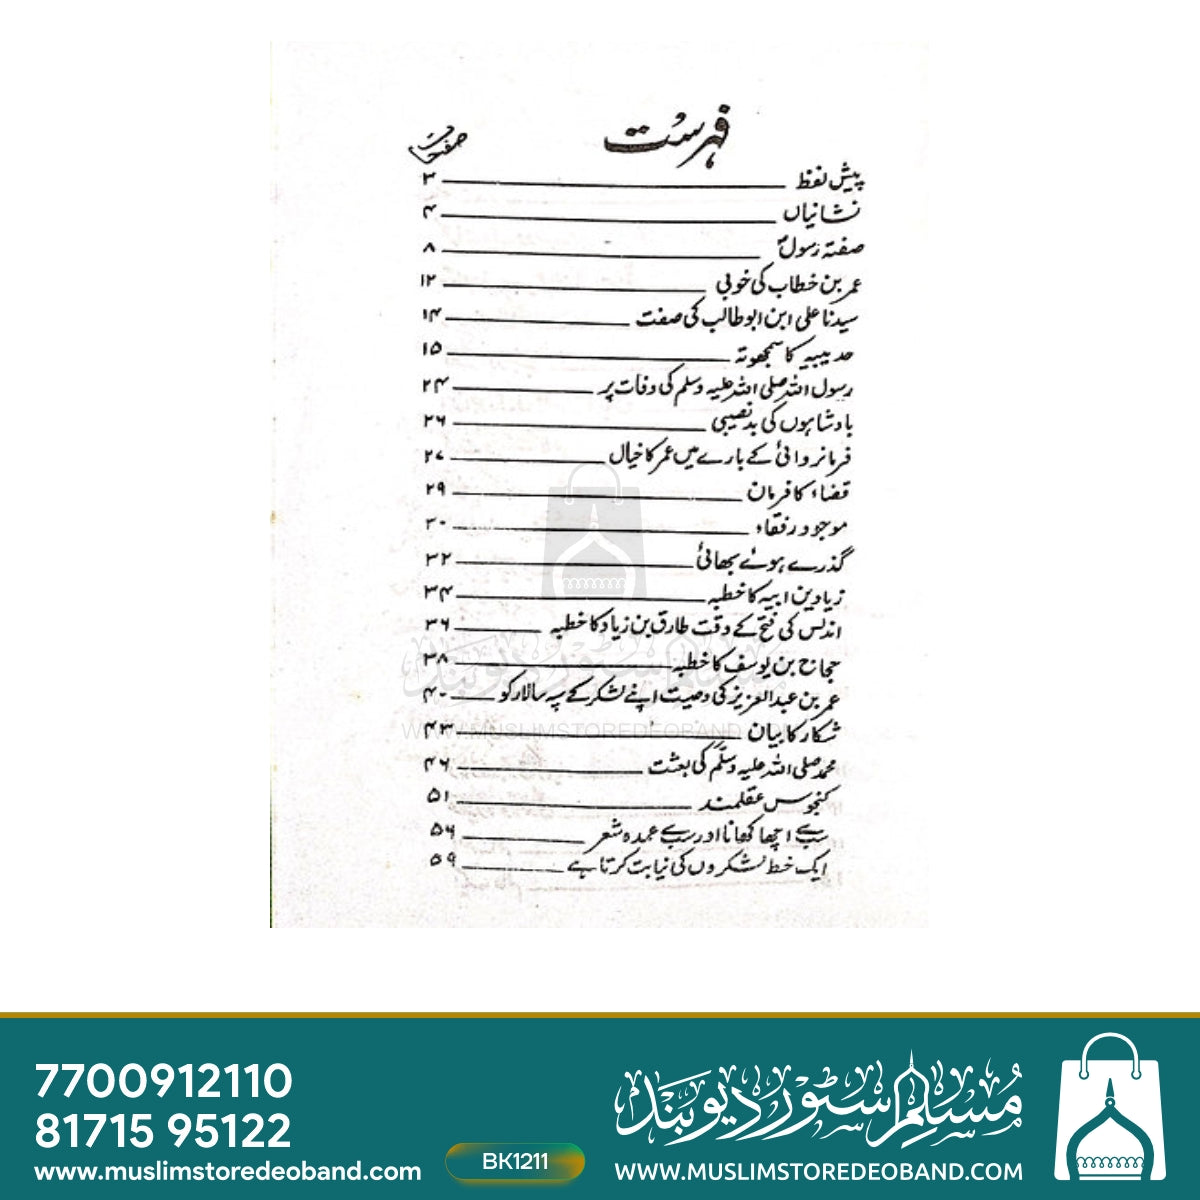 فہرست
صفحات
پیش لفظ ۳
نشانیاں ۴
صفتہ رسولؐ ۸
عمر بن خطاب کی خوبی ۱۲
سیدنا علی ابن ابو طالب کی صفت ۱۴
حدیبیہ کا سمجھوتہ ۱۵
رسول اللہ صلی اللہ علیہ وسلم کی وفات پر ۲۴
بادشاہوں کی بدنصیبی ۲۶
فرمانروائی کے بارے میں عمر کا خیال ۲۷
قضاء کا فرمان ۲۹
موجود رفقاء ۳۰
گذرے ہوئے بھائی ۳۲
زیاد بن ابیہ کا خطبہ ۳۴
اندلس کی فتح کے وقت طارق بن زیاد کا خطبہ ۳۶
حجاج بن یوسف کا خطبہ ۳۸
عمر بن عبدالعزیز کی وصیت اپنے لشکر کے سپہ سالار کو ۴۰
شکار کا بیان ۴۳
محمد صلی اللہ علیہ وسلم کی بعثت ۴۶
کنجوس عقلمند ۵۱
سب سے اچھا کھانا اور سب سے عمدہ شعر ۵۶
ایک خط لشکروں کی نیابت کرتا ہے ۵۹
مسلم سٹور دیوبند
WWW.MUSLIMSTOREDEOBAND.COM
7700912110
81715 95122
www.muslimstoredeoband.com
BK1211
مسلم سٹور دیوبند
WWW.MUSLIMSTOREDEOBAND.COM